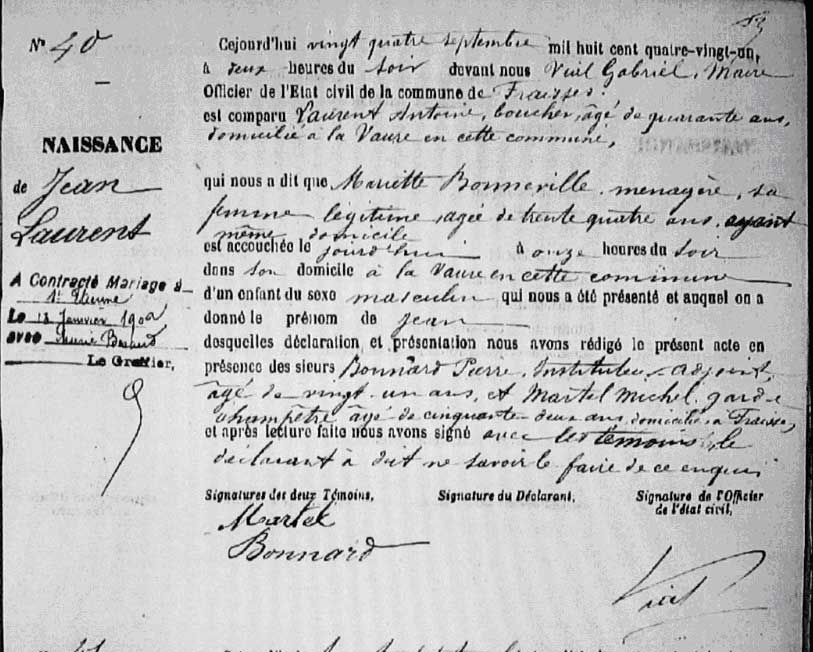 53
N° 40
NAISSANCE
de Jean
Laurent
A Contracté Mariage à
St Etienne
Le 13 Janvier 190
avec Marie
Le Greffier,
Cejourd'hui vingt quatre septembre mil huit cent quatre-vingt-un,
à deux heures du soir devant nous Viel Gabriel, Maire
Officier de l'Etat civil de la commune de Fraisses.
est comparu Laurent Antoine, boucher, âgé de quarante ans,
domicilié à la Vaure en cette commune,
qui nous a dit que Mariette Bonneville, menagère, sa
femme légitime, agée de trente quatre ans, ayant
même domicile
est accouchée le jourd'hui à onze heures du soir
dans son domicile à la Vaure en cette commune
d'un enfant du sexe masculin qui nous a été présenté et auquel on a
donné le prénom de Jean
desquelles déclaration et présentation nous avons rédigé le présent acte en
présence des sieurs Bonnard Pierre, Instituteur adjoint,
âgé de vingt-un ans, et Martel Michel, garde
champêtre âgé de cinquante deux ans, domiciliés à Fraisses,
et après lecture faite nous avons signé avec les témoins, le
déclarant à dit ne savoir le faire de ce enquis
Signatures des deux Témoins, Signature du Déclarant, Signature de l'Officier
de l'état civil,
Martel
Bonnard
Viel